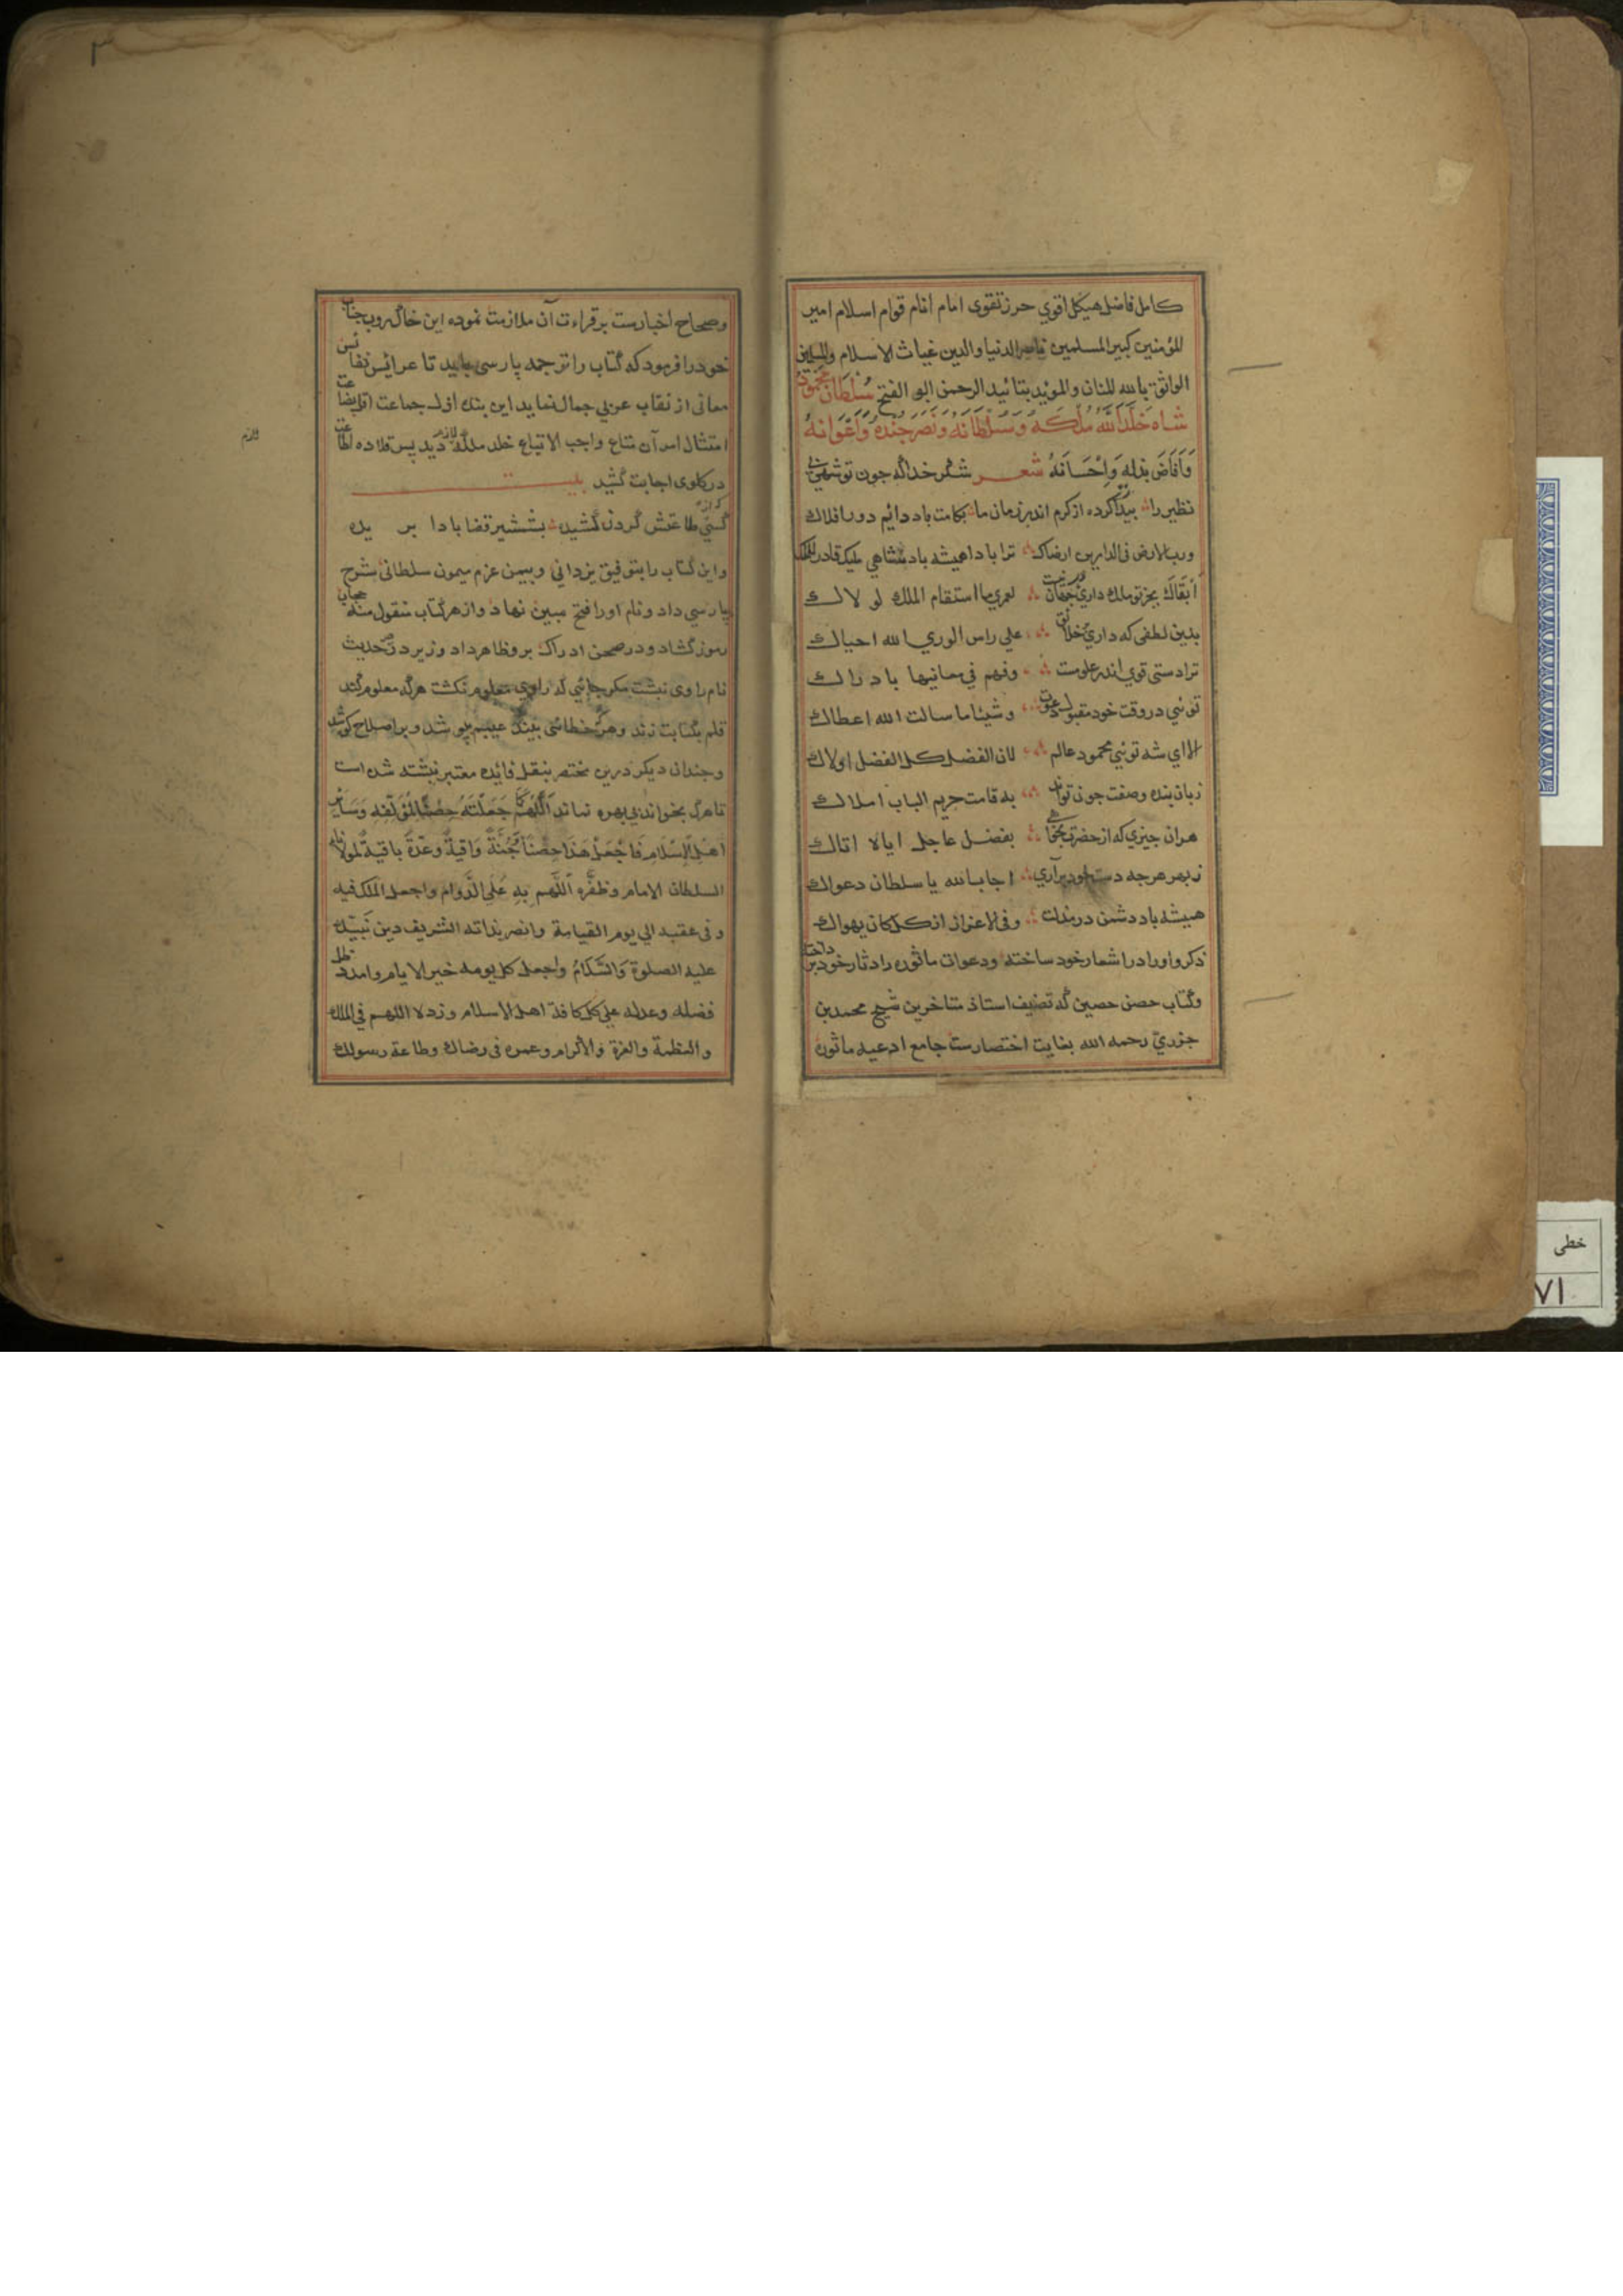 كامل فاضل هيكل اقوي حرز تقوى امام انام قوام اسلام امير
المؤمنين كبير المسلمين ناصر الدنيا والدين غياث الاسلام والمسلمين
الواثق بالله المنان والمويد بتائيد الرحمن ابو الفتح سُلْطَان مَحْمُود
شاه خَلَّدَ اللَّهُ مُلْكَهُ وَسُلْطَانَهُ وَنَصَرَ جُنْدَهُ وَاَعْوَانَهُ
وَاَفَاضَ بذله وَاِحْسَانَهُ شعر شكر خدا كه جون تو شهي بي
نظير را پيدا كرده از كرم اندر زمان ما بكامت باد دائم دور افلاك
ورب الارض في الدارين ارضاك ترا بادا هميشه باد شاهي مليك قادر للملك
اَبْقَاكَ بجز تو ملك داري لعمري ما استقام الملك لو لاك
بدين لطفى كه داري خلائق على راس الوري الله احياك
ترا دستى قوي اندر علومت وفهم في معانيها بادراك
توئي در وقت خود مقبول وشيئا ما سالت الله اعطاك
الا اي شه توئي محمود عالم لان الفضل كل الفضل اولاك
زبان بنده وصفت جون تواند به قامت حريم الباب املاك
هران جيزي كه از حضرت بخواهي بفضل عاجل ايالا اتاك
ز بهر هرجه دست خود برآري اجاب الله يا سلطان دعواك
هميشه باد دشمن در مذلت وفي الاعزاز از كل كان يهواك
ذكر واوراد را شعار خود ساخته ودعوات ماثوره را دثار خود پرداخته
وكتاب حصن حصين كه تصنيف استاذ متاخرين شيخ محمد بن
جزري رحمه الله بغايت اختصارست جامع ادعيه ماثوره
وصحاح اخبارست بر قراءت آن ملازمت نموده اين خاك روب جناب
خود را فرمود كه كتاب را ترجمه پارسى بايد تا عرائس نفائس
معانى از نقاب عربي جمال نمايد اين بنده اذل جماعت
امتثال امر آن متاع واجب الاتباع خلد ملكه لازم ديد پس قلاده اطاعت
در كلوى اجابت كشيد بيت
كسي كز طاعتش گردن كشيده بشمشير قضا بادا بريده
واين كتاب را بتوفيق يزداني وبيمن عزم ميمون سلطانى بشرح
پارسي داد ونام او را فتح مبين نهاد واز هر كتاب منقول منه حجاب
رموز گشاد ودر صحن ادراك بر وظاهر داد وزير در تحديث
نام راوى نبشت مكر جائي كه راوي معلوم نكشت هركه معلوم كند
قلم بكتابت زند وهركه خطائى بيند عيبم بپوشد وبر اصلاح كوشد
وجندان ديكر درين مختصر بنقل فائده معتبر نبشته شده است
تا هرك بخواند بي بهره نماند اَللّٰهُمَّ كما جَعَلْتَهُ حِصْنًا لِمُؤَلِّفِهِ وَسَايِرِ
اهل الاِسْلَام فَاجْعَلْ هَذَا حِصْنًا وَجُنَّةً وَاقِيَةً وَعُدَّةً بَاقِيَةً لمولانا
السلطان الامام وظفّره اللّهم به عَلَى الدَّوام واجعل الملك فيه
وفى عقبه الي يوم القيامة وانصر بذاته الشريف دين نَبِيِّكَ
عليه الصلوة وَالسَّلَامُ واجعل كل يومه خير الايام وامدد ظل
فضله وعدله على كل كافة اهل الاسلام وزد لا اللهم في الملك
والعظمة والعزة والاكرام وعمره فى رضاك وطاعة رسولك
لازم
٣
خطى
٧١